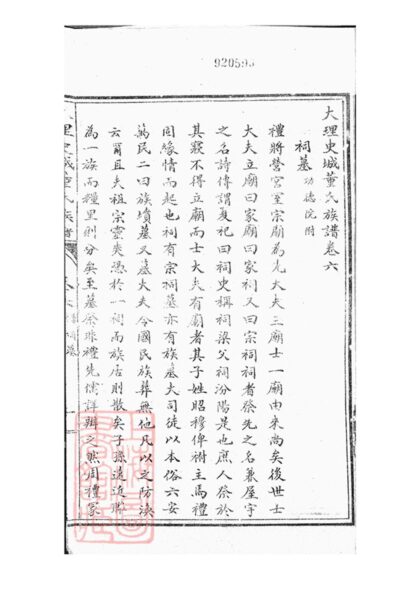 920593
大理史城董氏族譜卷六
祠墓 功德院附
禮將營宮室宗廟為先大夫三廟士一廟由來尚矣後世士
大夫立廟曰家廟曰家祠又曰宗祠祠者祭先之名兼屋宇
之名詩傳謂夏祀曰祠史稱祠梁父祠汾陽是也庶人祭於
其寢不得立廟而士大夫有廟者其子姓昭穆俾祔主焉禮
固緣情而起也祠有宗祠墓亦有族墓大司徒以本俗六安
萬民二曰族墳墓又墓大夫令國民族葬無他凡以之防渙
云爾且夫祖宗靈爽憑於一祠而族居則散矣子孫遠近
為一族而糧里則分矣至墓祭非禮先儒詳辯之然周禮冢
大理史城董氏族譜
卷六
祠墓
一